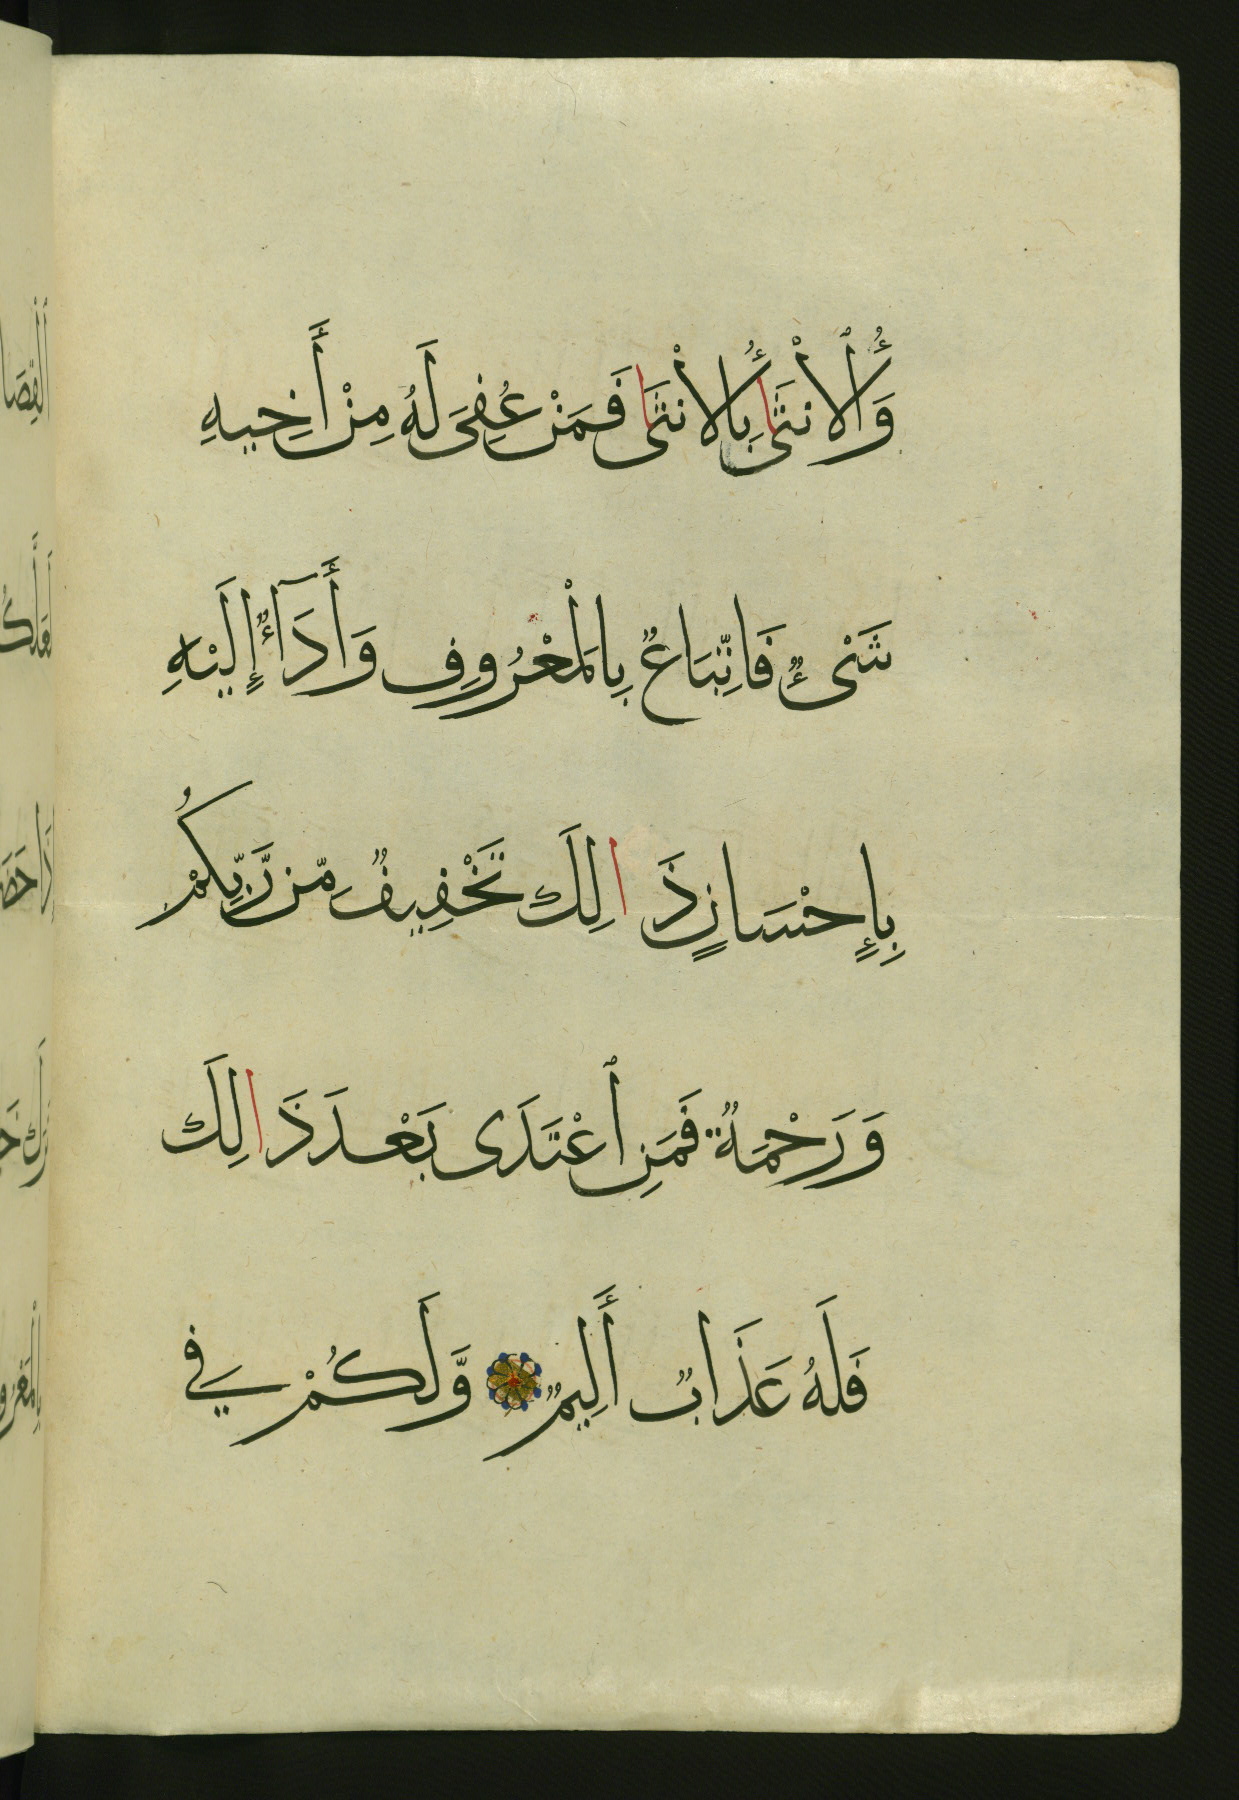 وَٱلْأُنثَىٰ بِٱلْأُنثَىٰ فَمَنْ عُفِىَ لَهُ مِنْ أَخِيهِ
شَىْءٌ فَاتِّبَاعٌ بِالْمَعْرُوفِ وَأَدَآءٌ إِلَيْهِ
بِإِحْسَانٍ ذَالِكَ تَخْفِيفٌ مِّن رَّبِّكُمْ
وَرَحْمَةٌ فَمَنِ ٱعْتَدَى بَعْدَ ذَالِكَ
فَلَهُ عَذَابٌ أَلِيمٌ وَّلَكُمْ فِي